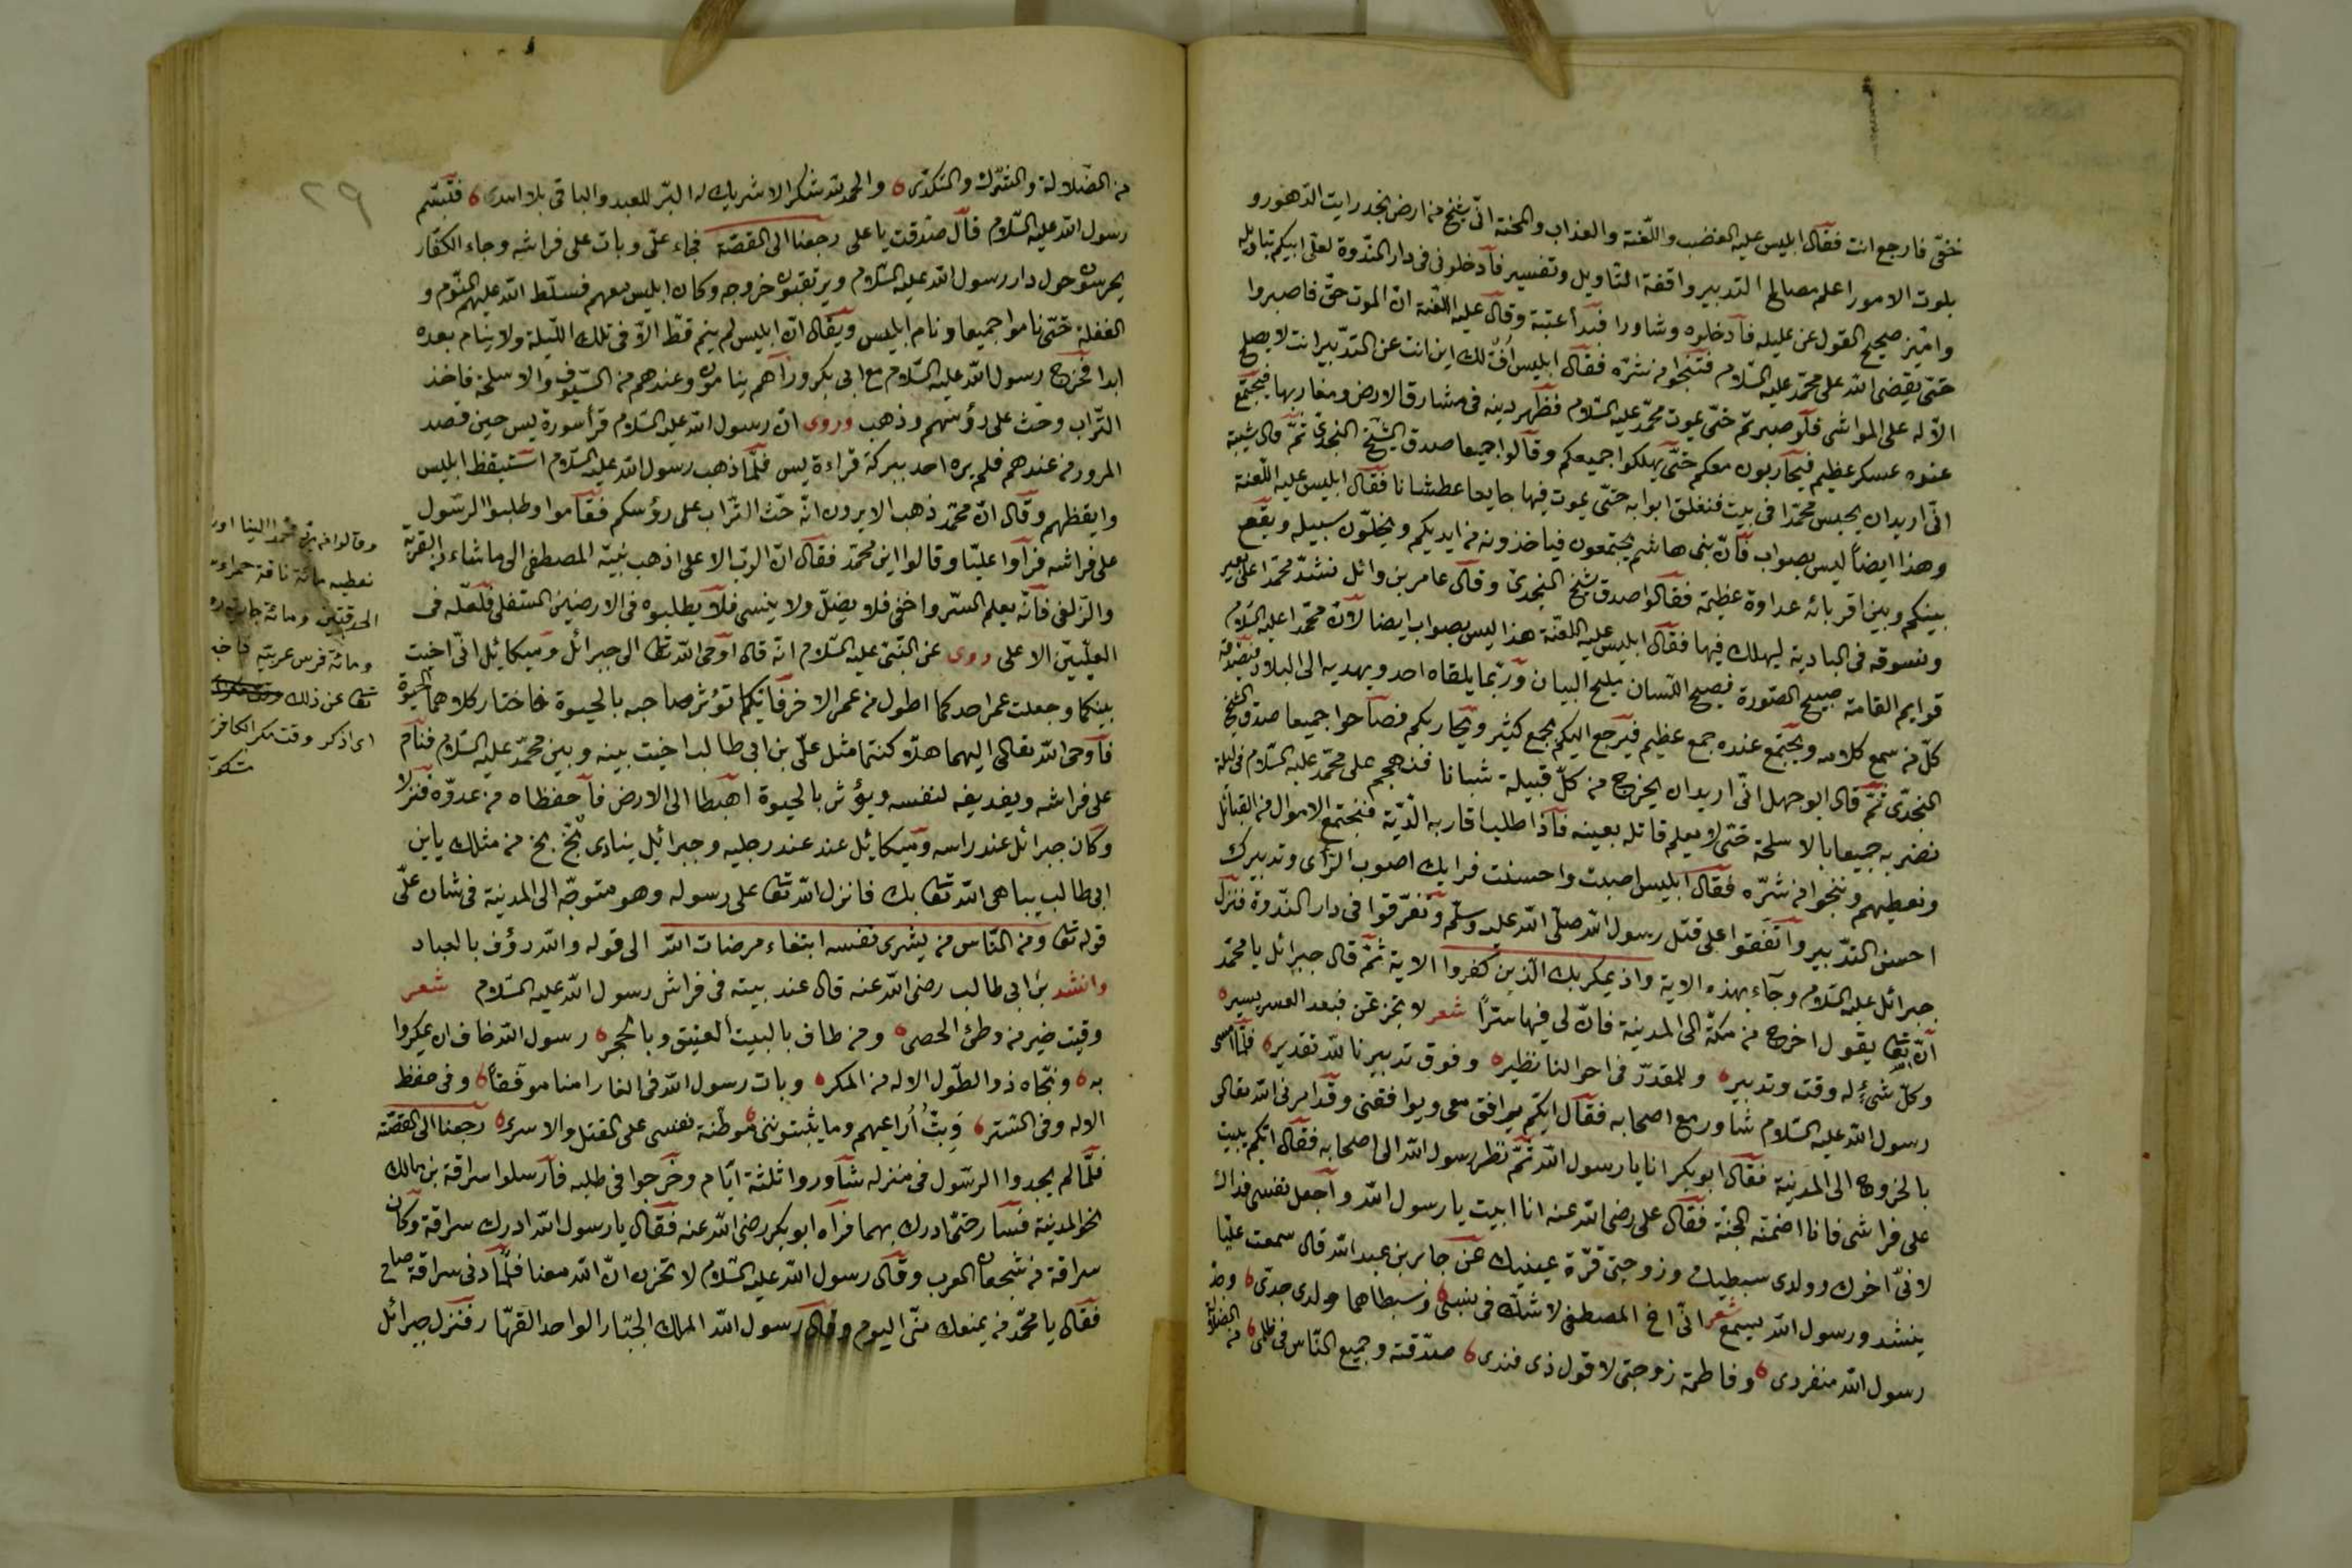 خفّى فارجع انت فقال ابليس عليه الغضب واللّعنة والعذاب والمحنة انّى شيخ من ارض نجد رايت الدّهور و
بلوت الامور اعلم مصالح التدبير واقفة التأويل وتفسير فأدخلونى فى دار النّدوة لعلّى
واميّز صحيح القول عن عليله فادخلوه وشاورا فبدأ عتبة وقال عليه اللّعنة انّ الموت حقّ فاصبروا
حتّى يقضى الله على محمّد عليه السّلام فتنجوا من شرّه فقال ابليس أفّ لك اين انت عن التدبير انت لا يصلح
الّا له على المواشى فلو صبرتم حتّى يموت محمّد عليه السّلام فظهر دينه فى مشارق الارض ومغاربها فيجتمع
عنده عسكر عظيم فيحاربون معكم حتّى يهلكوا جميعكم وقالوا جميعا صدق الشيخ النجدى ثمّ قال شيبة
انّى اريد ان يحبس محمّدا فى بيت فنغلق ابوابه حتّى يموت فيها جايعا عطشانا فقال ابليس عليه اللّعنة
وهذا ايضاً ليس بصواب فانّ بنى هاشم يجتمعون فياخذونه من ايديكم ويخلّون سبيله ويقع
بينكم وبين اقربائه عداوة عظيمة فقالوا صدق شيخ النجدى وقال عامر بن وائل نشدّ محمّدا على بعير
ونسوقه فى البادية ليهلك فيها فقال ابليس عليه اللعنة هذا ليس بصواب ايضا لانّ محمّدا عليه السّلام
قوايم القامة صبيح الصّورة فصيح اللسان مليح البيان وربّما يلقاه احد ويهديه الى البلاد فيصدقه
كلّ من سمع كلامه ويجتمع عنده جمع عظيم فيرجع اليكم بجمع كثير ويحاربكم فصاحوا جميعا صدق الشيخ
النجدى ثمّ قال ابو جهل انّى اريد ان يخرج من كلّ قبيلة شبانا فنهجم على محمّد عليه السّلام فى ليلة
نضربه جميعا بالاسلحة حتّى لا يعلم قاتله بعينه فاذا طلب اقاربه الدّية فنجتمع الاموال من القبائل
ونعطيهم وننجوا من شرّه فقال ابليس اصبت واحسنت فرايك اصوب الرّأى وتدبيرك
احسن التدبير واتّفقوا على قتل رسول الله صلّى الله عليه وسلّم وتفرّقوا فى دار الندوة فنزل
جبرائل عليه السّلام وجاء بهذه الاية واذ يمكر بك الّذين كفروا الاية ثمّ قال جبرائل يا محمّد
انّ الله تعا يقول اخرج من مكّة الى المدينة فانّ لى فيها سرّاً شعر لا تجزعن فبعد العسر يسيره
وكلّ شئ له وقت وتدبيره وللمقدّر فى احوالنا نظيره وفوق تدبيرنا لله تقديره فلمّا امسى
رسول الله عليه السّلام شاور مع اصحابه فقال ايّكم يرافق معى ويوافقنى وقد امرنى الله تعالى
بالخروج الى المدينة فقال ابو بكر انا يا رسول الله ثمّ نظر رسول الله الى اصحابه فقال ايّكم يبيت
على فراشى فانا اضمنه الجنّة فقال على رضى الله عنه انا ابيت يا رسول الله واجعل نفسى فداك
لانّى اخوك وولدى سبطيك وزوجتى قرّة عينيك عن جابر بن عبد الله قال سمعت عليّا
ينشد ورسول الله يسمع شعر انّى اخ المصطفى لا شكّ فى نسبى وسبطاهما ولدى جدّى وجدّ
رسول الله منفردى وفاطمة زوجتى لا قول ذى فندى صدّقته وجميع النّاس فى ظلم من الضلالة
٢٩
من الضّلالة والشّرك والنكدى والحمد لله شكرا لا شريك له البرّ للعبد والباقى بلا امدى فتبسّم
رسول الله عليه السّلام قال صدقت يا على رجعنا الى القصّة فجاء علّى وبات على فراشه وجاء الكفّار
يحرسون حول دار رسول الله عليه السّلام ويرتقبون خروجه وكان ابليس معهم فسلّط الله عليهم النّوم و
الغفلة حتّى ناموا جميعا ونام ابليس ويقال انّ ابليس لم ينم قطّ الّا فى تلك اللّيلة ولا ينام بعده
ابدا فخرج رسول الله عليه السّلام مع ابى بكر ورآهم ينامون وعندهم من السّيوف والاسلحة فاخذ
التّراب وحث على رؤسهم وذهب وروى انّ رسول الله عليه السّلام قرأ سورة يس حين قصد
المرور من عندهم فلم يره احد ببركة قراءة يس فلمّا ذهب رسول الله عليه السّلام استيقظ ابليس
وايقظهم وقال انّ محمّد ذهب الا يرون انّه حثّ التّراب على رؤسكم فقاموا وطلبوا الرسول
على فراشه فرأوا عليّا وقالوا اين محمّد فقال انّ الربّ الاعلى اذهب نبيّه المصطفى الى ماشاء من القربة
والزلفى فانّه يعلم السّر واخفى فلا يضلّ ولا ينسى فلا يطلبوه فى الارضين السّفلى فلعلّه فى
العلّيين الاعلى روى عن النّبى عليه السّلام انّه قال اوحى الله تعا الى جبرائل وميكائيل انّى اخيت
بينكما وجعلت عمر احدكما اطول من عمر الاخر فايّكما تؤثر صاحبه بالحيوة فاختار كلاهما الحيوة
فاوحى الله تعالى اليهما هلّا كنتما مثل علّى بن ابى طالب اخيت بينه وبين محمّد عليه السّلام فنام
على فراشه ويفديه لنفسه ويؤثر بالحيوة اهبطا الى الارض فاحفظاه من عدوّه فنزلا
وكان جبرائل عند راسه وميكائيل عند عند رجليه وجبرائيل ينادى بخّ بخ من مثلك يا ابن
ابى طالب يباهى الله تعا بك فانزل الله تعا على رسوله وهو متوجّه الى المدينة فى شان علّى
قوله تعا ومن النّاس من يشرى نفسه ابتغاء مرضات الله الى قوله والله رؤف بالعباد
وانشد بن ابى طالب رضى الله عنه قال عند بيته فى فراش رسول الله عليه السّلام شعر
وقيت خير من وطئ الحصى ومن طاف بالبيت العتيق وبالحجر رسول الله خاف ان يمكروا
به ونجّاه ذو الطّول الاله من المكر وبات رسول الله فى الغار امنا موقّقاً وفى حفظ
الاله وفى الستر وبتّ أراعيهم وما يثبتوننى موطّنة نفسى على القتل والاسر رجعنا الى القصّة
فلمّا لم يجدوا الرسول فى منزله شاوروا ثلثة ايّام وخرجوا فى طلبه فارسلوا سراقة بن مالك
نحو المدينة فسار حتّى ادرك بهما فرآه ابو بكر رضى الله عنه فقال يا رسول الله ادرك سراقة وكان
سراقة من شجعان العرب وقال رسول الله عليه السّلام لا تحزن انّ الله معنا فلمّا دنى سراقة صاح
فقال يا محمّد من يمنعك منّى اليوم وقال رسول الله الملك الجبّار الواحد القهّار فنزل جبرائل
وقالوا من يرد محمدا الينا
نعطيه مائة ناقة حمراء
الحدقتين ومائة جارية
ومائة فرس عربيّة فاخبر
تعا عن ذلك
اى اذكر وقت مكر الكافرين